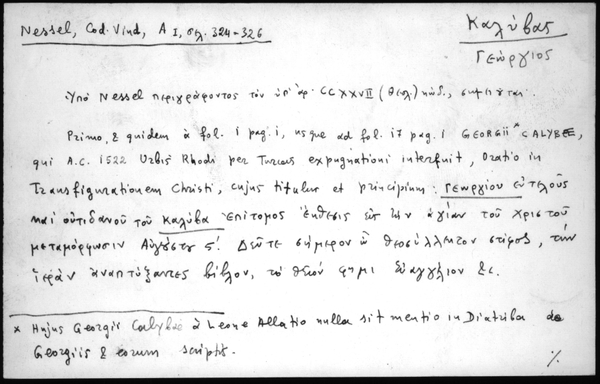 Nessel, Cod. Vind, A I, σελ. 324-326
Καλύβας
Γεώργιος
Ὑπὸ Nessel περιγράφοντος τὸν ὑπ' ἀρ. CCXXVII (θεολ.) κώδ.,
Primo, & quidem à fol. 1 pag. 1, usque ad fol. 17 pag. 1 GEORGII * CALYBÆ,
qui A.C. 1522 Urbis Rhodi per Turcas expugnationi interfuit, Oratio in
Transfigurationem Christi, cujus titulus et principium: Γεωργίου εὐτελοῦς
καὶ οὐτιδανοῦ τοῦ Καλύβα ἐπίτομος ἔκθεσις εἰς τὴν ἁγίαν τοῦ Χριστοῦ
μεταμόρφωσιν Αὐγούστου ς'. Δεῦτε σήμερον ὦ θεοσύλλεκτον στίφος, τὴν
ἱερὰν ἀναπτύξαντες βίβλον, τὸ θεῖόν φημι εὐαγγέλιον &c.
* Hujus Georgii Calybæ à Leone Allatio nulla sit mentio in Diatriba de
Georgiis & eorum scriptis.
./.